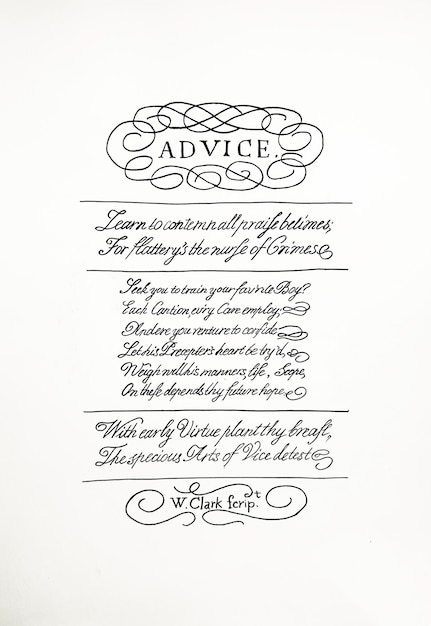 ADVICE.
Learn to contemn all praiſe betimes;
For flattery's the nurſe of Crimes.
Seek you to train your fav'rite Boy?
Each Caution ev'ry Care employ;
And ere you venture to confide
Let his Precepter's heart be try'd,
Weigh well his manners, life, Scope,
On theſe depends thy future hope
With early Virtue plant thy breaſt,
The specious Arts of Vice detest
W. Clark ſcrip.t